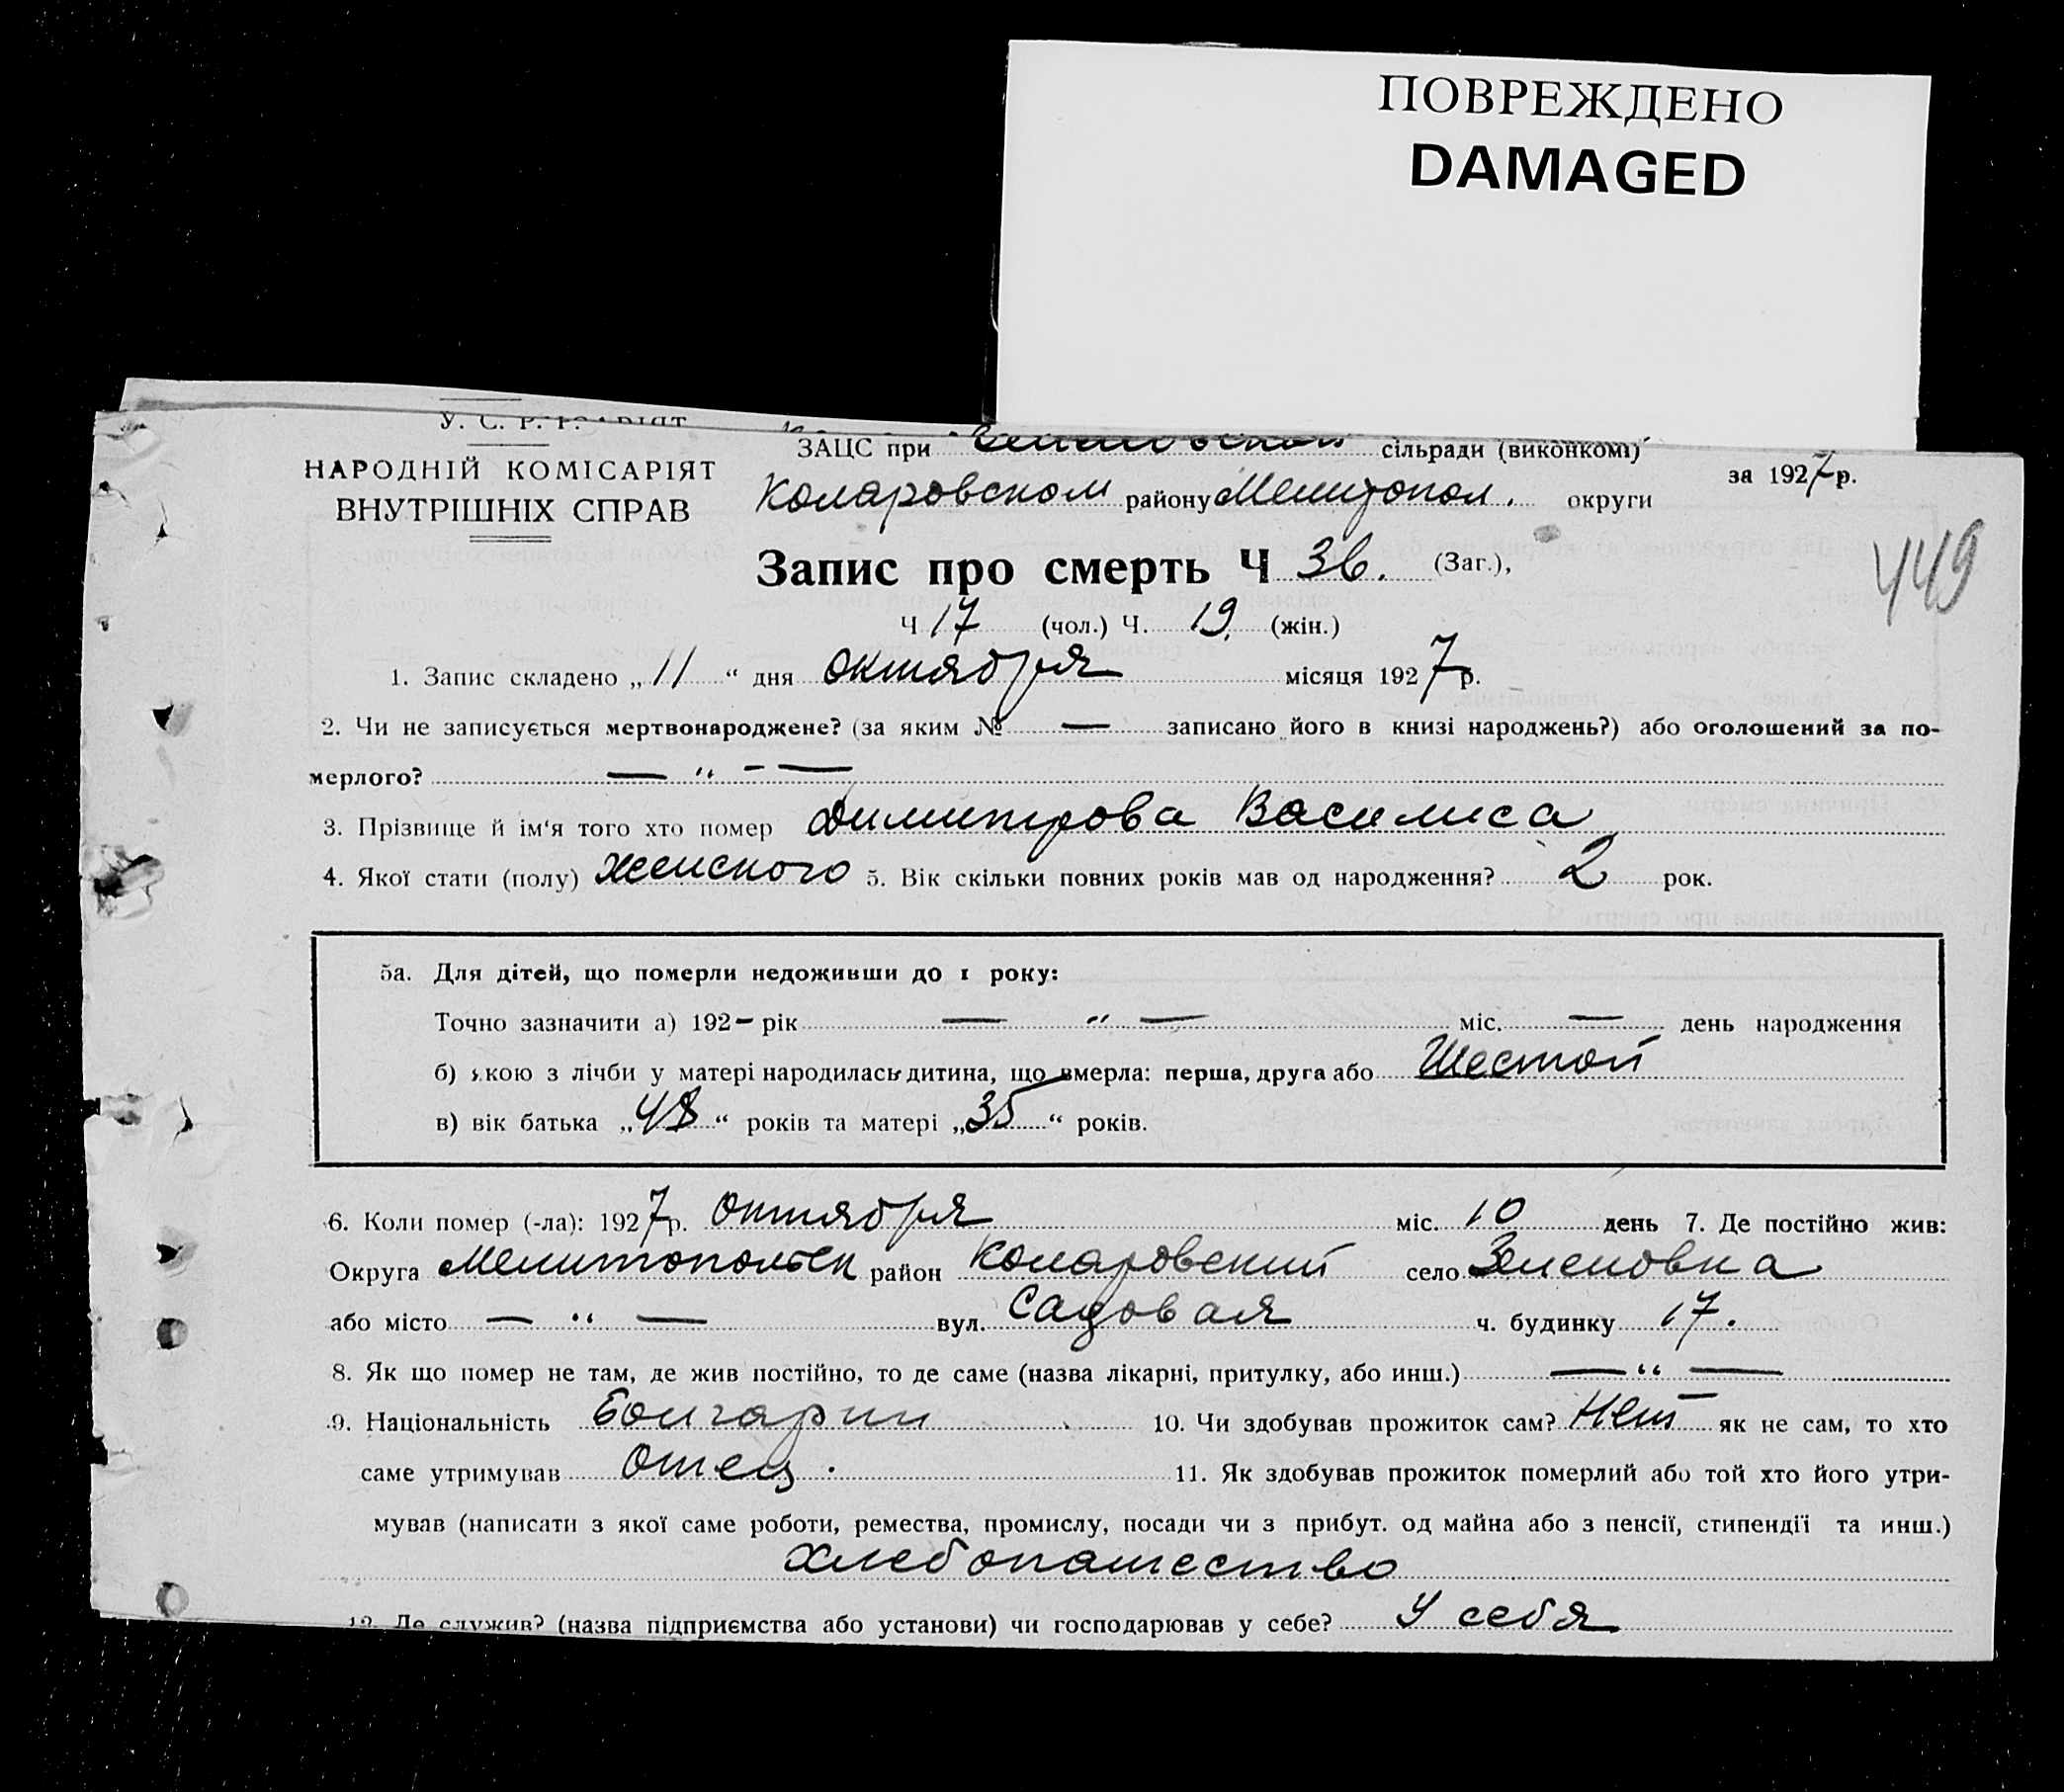 ПОВРЕЖДЕНО
DAMAGED
У. С. Р. Р.
НАРОДНІЙ КОМІСАРІЯТ
ВНУТРІШНІХ СПРАВ
ЗАЦС при сільради (виконкомі)
Коларовском району Мелитопол. округи
за 1927 р.
449
Запис про смерть Ч 36. (Заг.),
Ч 17 (чол.) Ч. 19. (жін.)
1. Запис складено „ 11 “ дня октября місяця 1927 р.
2. Чи не записується мертвонароджене? (за яким № — записано його в книзі народжень?) або оголошений за по-
мерлого? — " — —
3. Прізвище й ім'я того хто помер Димитрова Василиса
4. Якої стати (полу) женского 5. Вік скільки повних років мав од народження? 2 рок.
5а. Для дітей, що померли недоживши до 1 року:
Точно зазначити а) 192— рік — " — міс. — день народження
б) якою з лічби у матері народилась дитина, що вмерла: перша, друга або Шестой
в) вік батька „48“ років та матері „35“ років.
6. Коли помер (-ла): 1927 р. Октября міс. 10 день 7. Де постійно жив:
Округа Мелитопольск район Коларовский село Зеленовка
або місто — " — вул. Садовая ч. будинку 17.
8. Як що помер не там, де жив постійно, то де саме (назва лікарні, притулку, або инш.) — " —
9. Національність Болгарии 10. Чи здобував прожиток сам? Нет як не сам, то хто
саме утримував Отец. 11. Як здобував прожиток померлий або той хто його утри-
мував (написати з якої саме роботи, ремества, промислу, посади чи з прибут. од майна або з пенсії, стипендії та инш.)
хлебопашество
12. Де служив? (назва підприємства або установи) чи господарював у себе? У себя